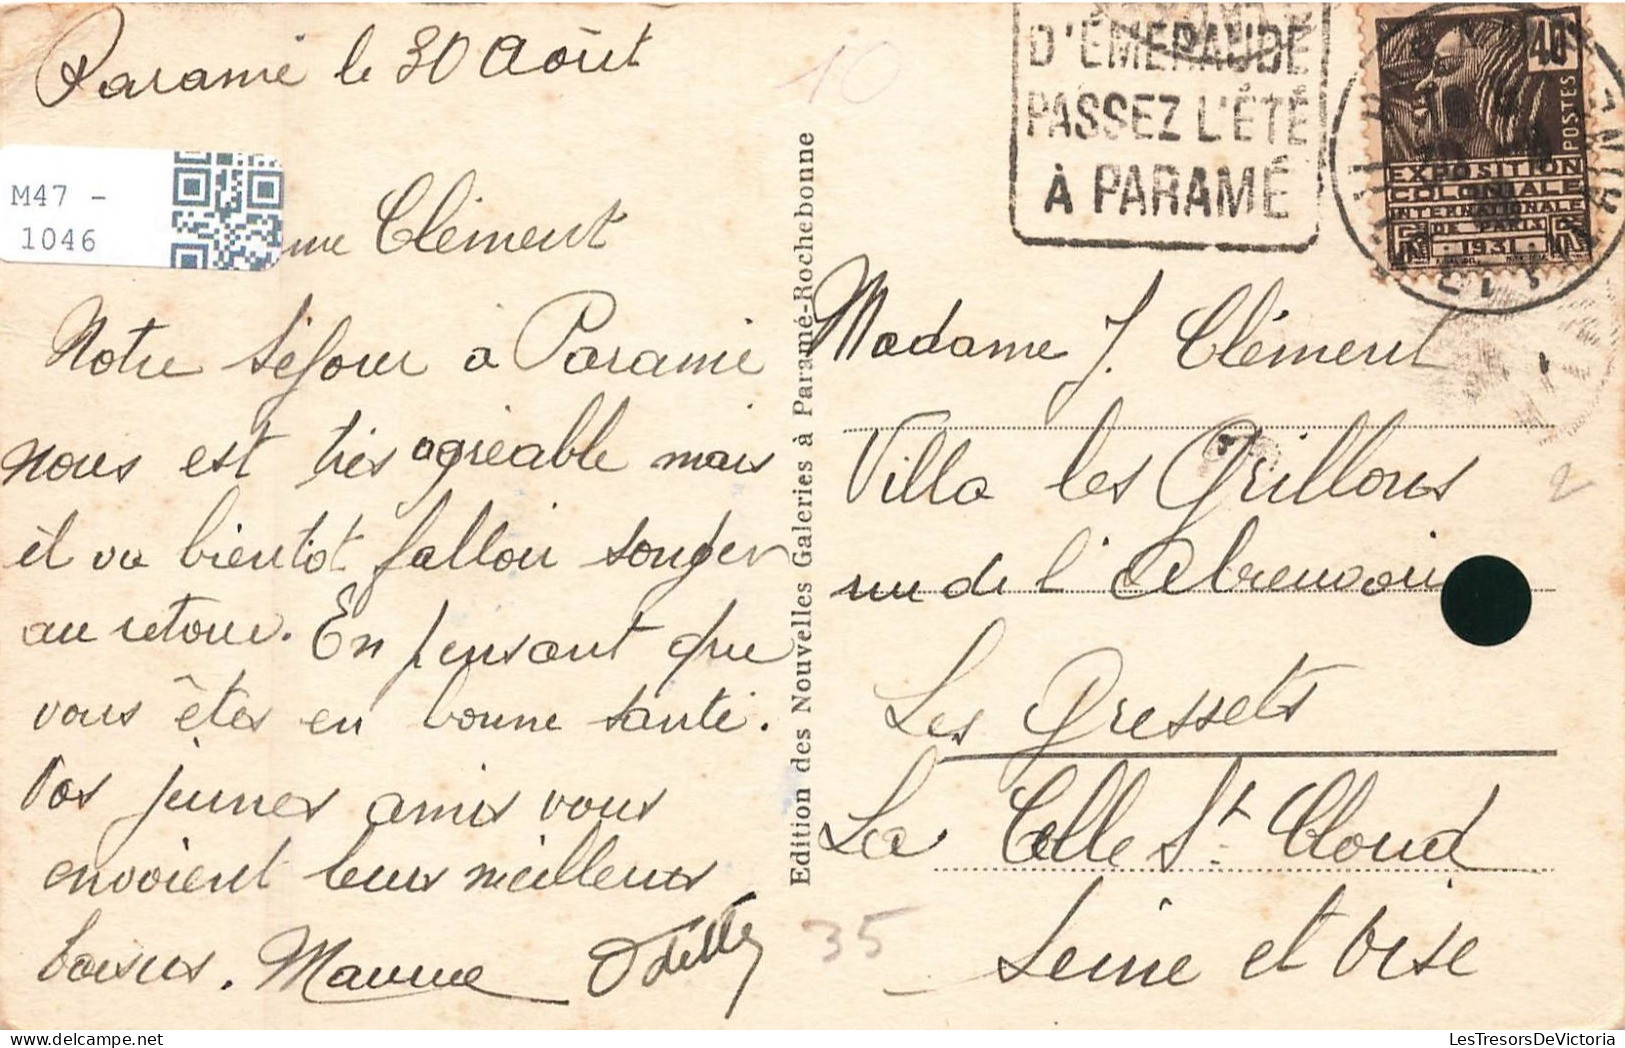 Paramé le 30 Août
M47 -
1046
me Clément
Notre séjour à Paramé
nous est très agréable mais
il va bientôt falloir songer
au retour. En pensant que
vous êtes en bonne santé.
Vos jeunes amis vous
envoient leurs meilleurs
baisers. Maurice Odette
Edition des Nouvelles Galeries à Paramé-Rochebonne
10
35
D'ÉMERAUDE
PASSEZ L'ÉTÉ
À PARAMÉ
40
POSTES
EXPOSITION
COLONIALE
INTERNATIONALE
DE PARIS
1931
Madame J. Clément
Villa les Grillons
rue de l'Abreuvoir
Les Gressets
La Celle St Cloud
Seine et Oise
2
LesTresorsDeVictoria